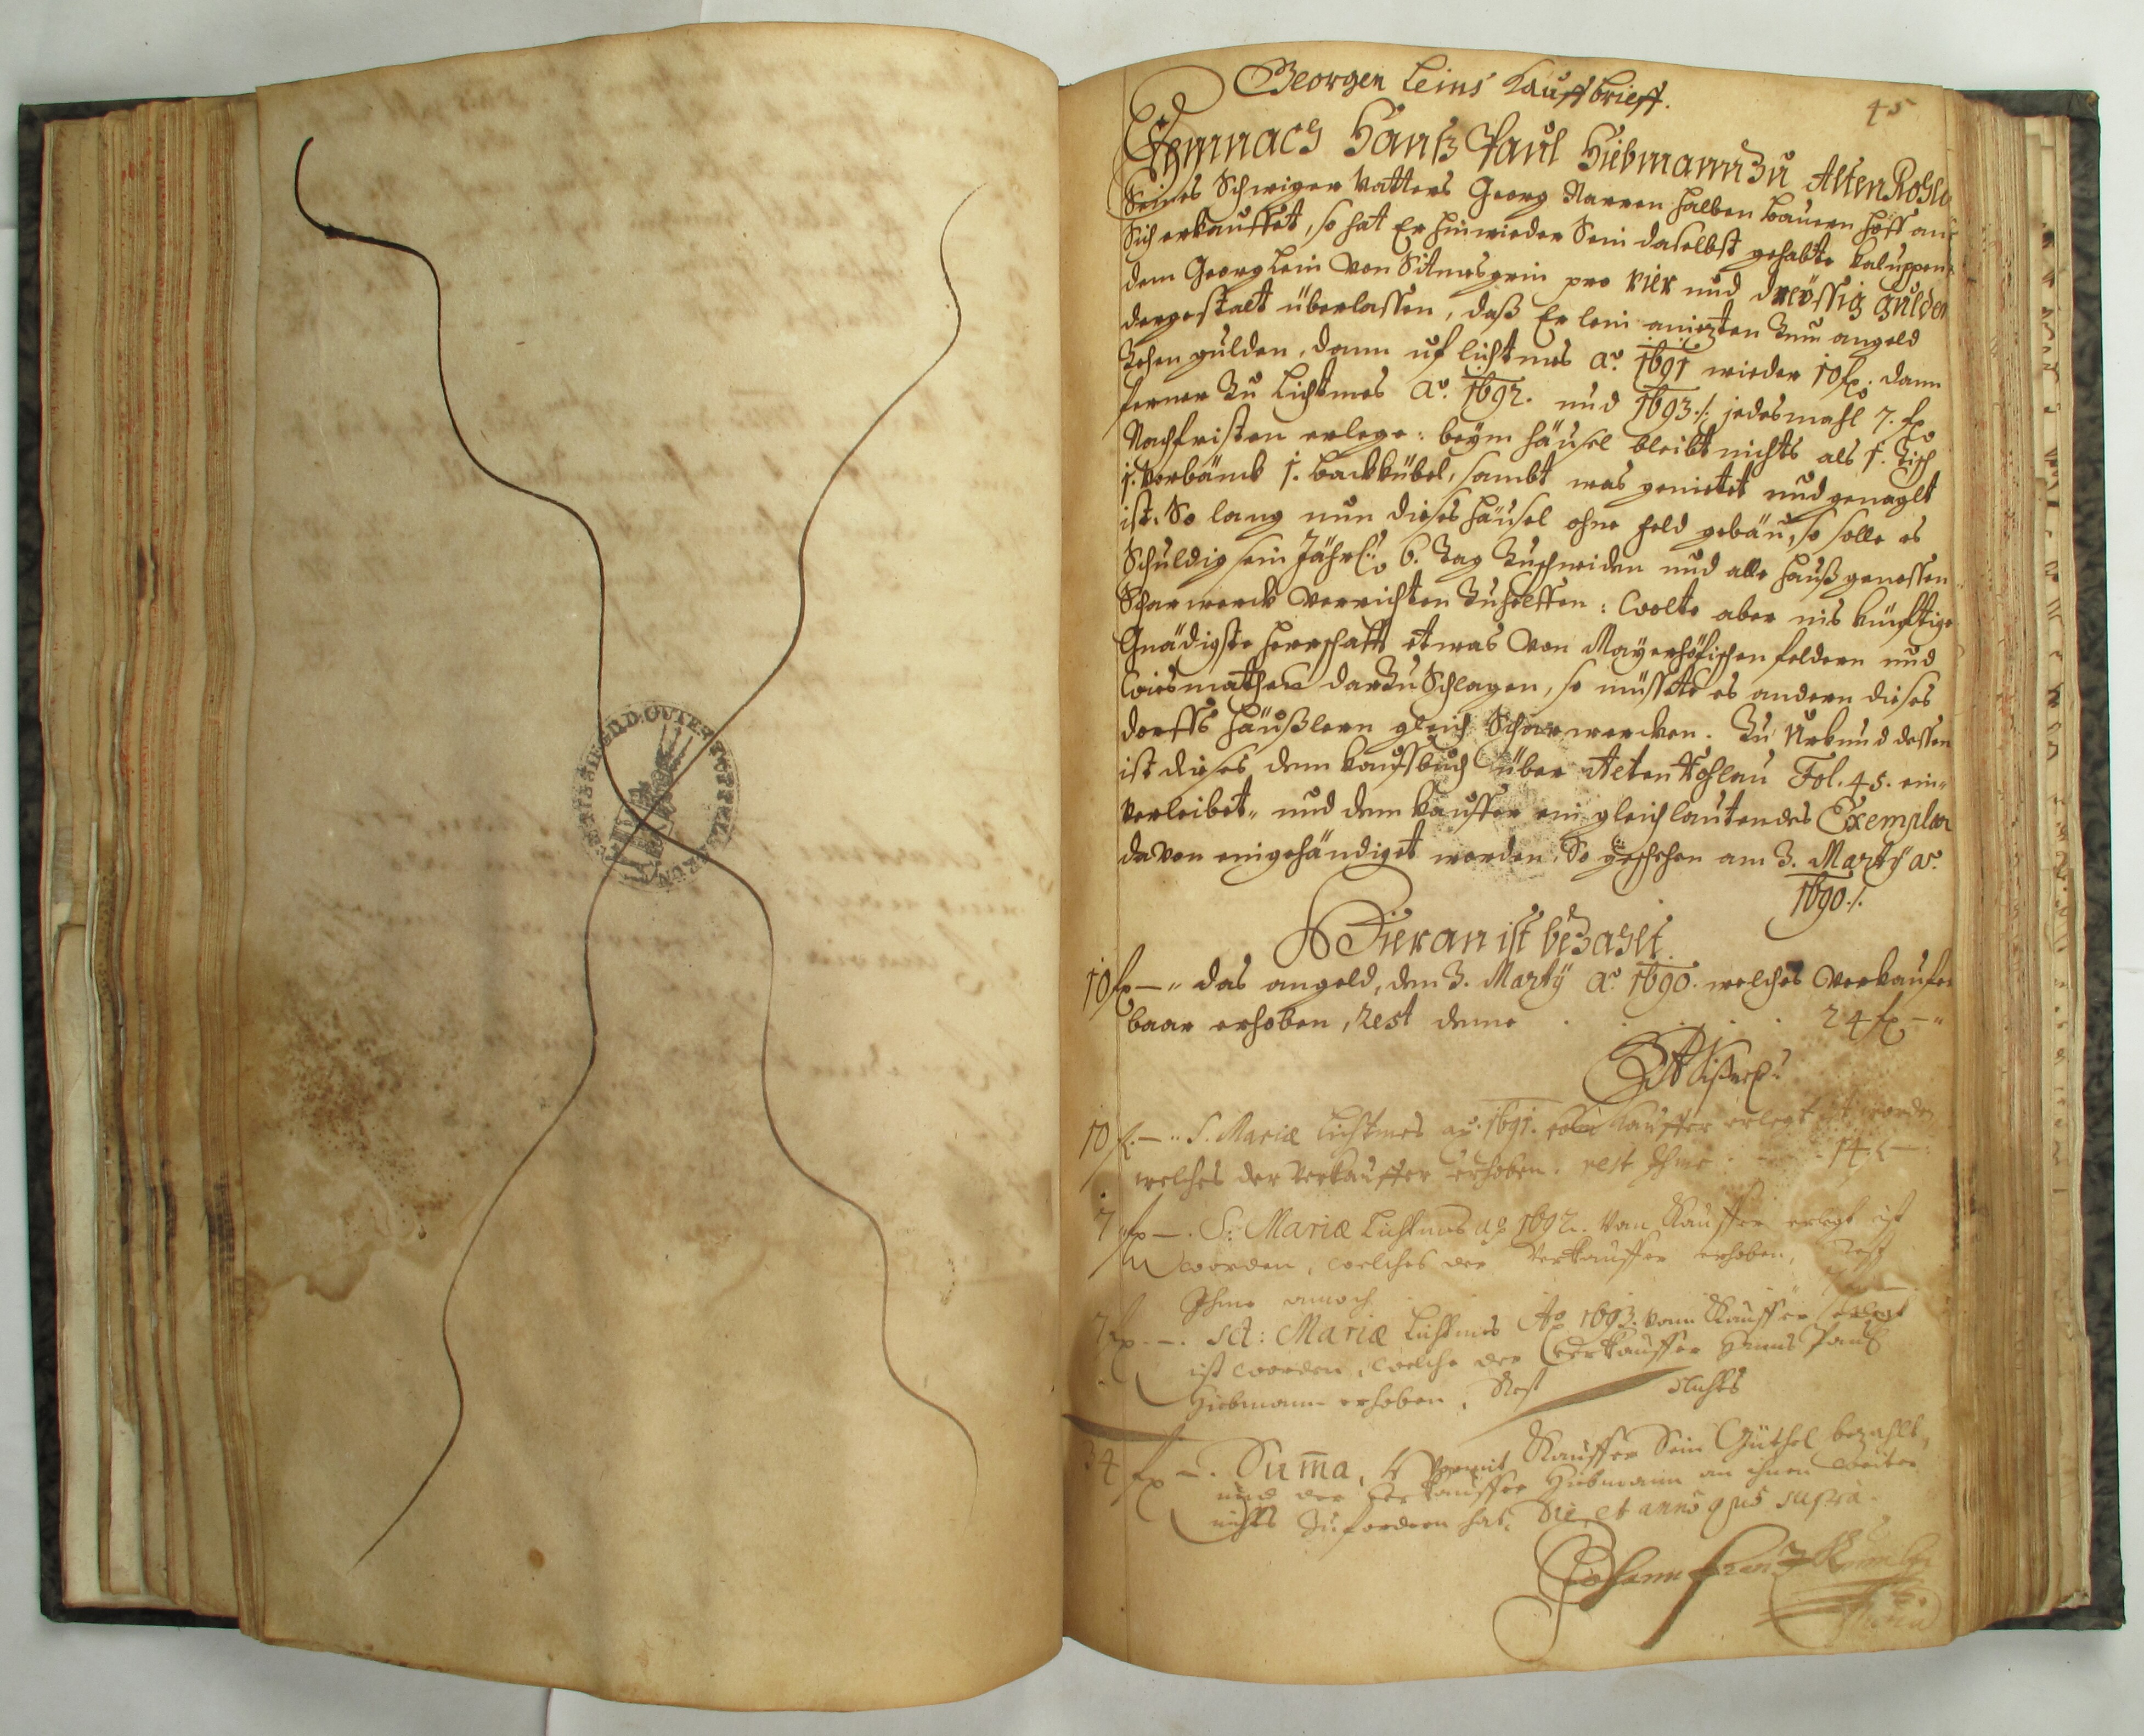 45
Georgen Leins Kauffbrieff.
Demnach Hanß Paul Hiebmann Zu AltenRohla
Seines Schwiger Vatters Georg Narren halben bauern hoff an
Sich erkauffet, so hat Er hinwieder Sein daselbst gehabte kaluppen
dem Georg Lein von Sitmesgrin pro vier und dreÿssig gulden
dergestalt überlassen, daß Er Lein aniezten Zum angeld
Zehen gulden, dann uf lichtmes Aõ. 1691 wieder 10 fl. dann
ferner Zu Lichtmes Aõ. 1692. und 1693 ./. jedesmahl 7. fl.
Nachfristen erlege: beÿm häusel bleibt nichts als 1. Tisch
1. Vorbänck 1. backkübel, sambt was genietet und genaglt
ist. So lang nun dieses häusel ohne feld gebäu, so solle es
Schuldig sein Jährl: 6. Tag Zuschneiden und alle haußgenossen
Scharwerck verrichten Zuhelffen: Wolte aber eine künfftige
Gnädigste herrschafft etwas von Maÿerhöfischen feldern und
Wiesmathen darZu Schlagen, so müsste es andern dieses
dorffs häußlern gleich Scharwercken. Zu Urkund dessen
ist dieses dem kauffbuch über Alten Rohlau Fol. 45. ein-
verleibet, und dem kauffer ein gleichlautendes Exemplar
davon eingehändiget worden. So geschehen am 3. Martÿ aõ.
1690 ./.
Hieran ist bezahlt
10 fl — „ das angeld, den 3. Martÿ Aõ. 1690. welches Verkaufer
baar erhoben, Rest deme . . . . 24 fl — „
10 fl. — „ S. Mariæ Lichtmes aõ. 1691. vom Kauffer erlegt worden
welches der Verkauffer erhoben. rest Ihme . — . 14 fl —
7 fl — . S: Mariæ Lichtmes aõ 1692. vom Kauffer erlegt ist
worden, welches der Verkauffer erhoben, Rest
Ihme annoch 7 fl —
7 fl. — . Sct: Mariæ Lichtmes Aõ 1693. vom Kauffer erlegt
ist worden, welche der Verkauffer Hanns Paul
Hiebmann erhoben. Rest nichts
34 fl — . Suma, womit Kauffer Sein Güthel bezahlt,
und der Verkauffer Hiebmann an ihnen weiter
nichts Zufordern hat. Die et anno quo supra.
Johann Frantz